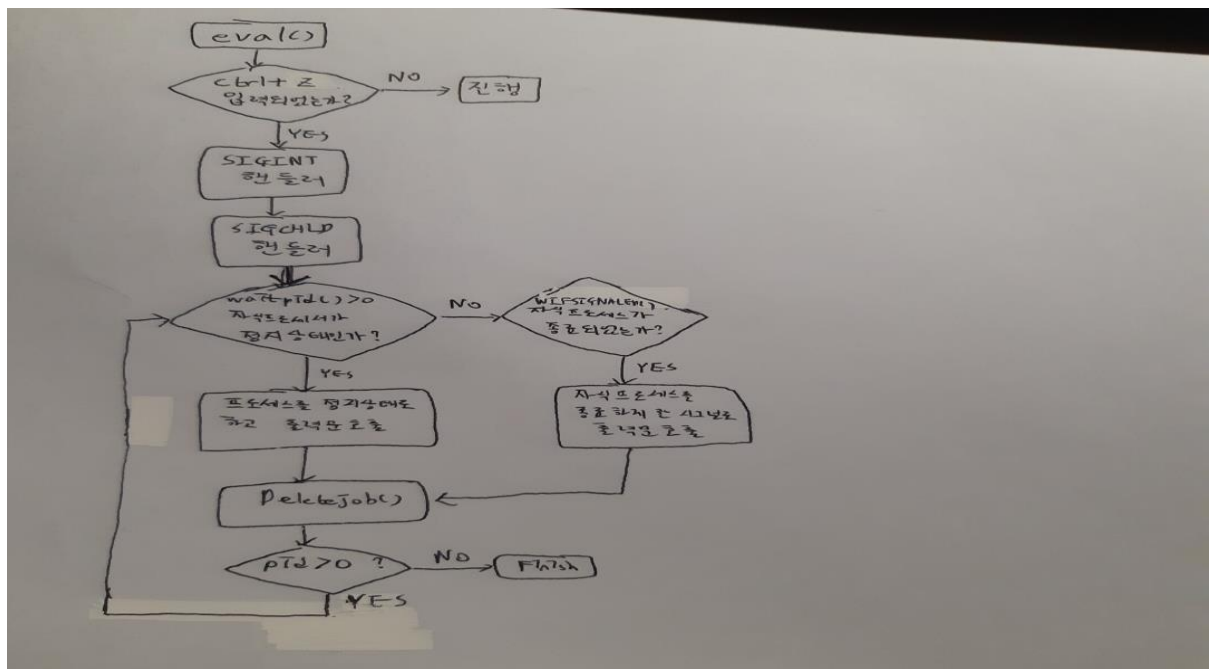 eval()
ctrl+ z
입력되었는가?
NO
진행
YES
SIGINT
핸들러
SIGCHLD
핸들러
waitpid()>0
자식프로세서가
정지상태인가?
NO
WIFSIGNALED()
자식프로세스가
종료되었는가?
YES
YES
프로세스를 정지상태로
하고 출력문호출
자식프로세스를
종료하게 한 시그널로
출력문호출
Deletejob()
pid>0 ?
NO
Finish
YES